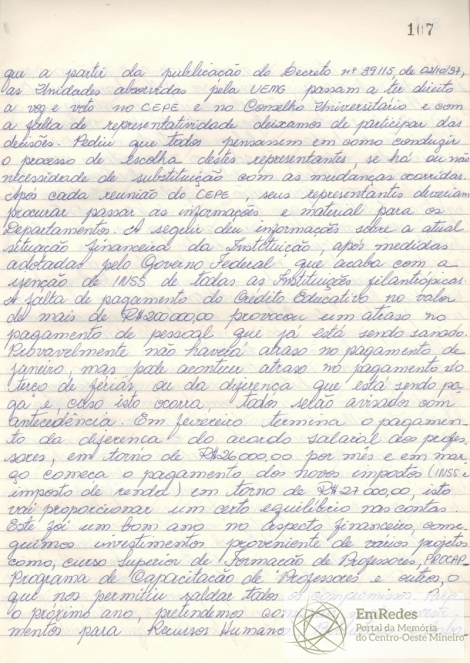 107
que a partir da publicação do Decreto nº 39115, de 03/10/97,
as Unidades absorvidas pela UEMG passam a ter direito
a voz e voto no CEPE e no Conselho Universitário e com
a falta de representatividade deixamos de participar das
decisões. Pediu que todos pensassem em como conduzir
o processo de escolha destes representantes, se há ou não
necessidade de substituição com as mudanças ocorridas.
Após cada reunião do CEPE, seus representantes deveriam
procurar passar as informações e material para os
Departamentos. A seguir deu informações sobre a atual
situação financeira da Instituição, após medidas
adotadas pelo Governo Federal que acaba com a
isenção de INSS de todas as Instituições filantrópicas.
A falta de pagamento do Crédito Educativo no valor
de mais de R$200000,00 provocou um atraso no
pagamento de pessoal que já está sendo sanado.
Provavelmente não haverá atraso no pagamento de
janeiro, mas pode acontecer atraso no pagamento do
terço de férias, ou da diferença que está sendo pa
ga e, caso isto ocorra, todos serão avisados com
antecedência. Em fevereiro termina o pagamen-
to da diferença do acordo salarial dos profes-
sores, em torno de R$36000,00 por mês e em mar
ço começa o pagamento dos novos impostos (INSS e
imposto de renda) em torno de R$27000,00, isto
vai proporcionar um certo equilíbrio nas contas.
Este foi um bom ano no aspecto financeiro, conse
guimos investimentos proveniente de vários projetos
como, curso Superior de Formação de Professores, PROCAP
Programa de Capacitação de Professores e outros, o
que nos permitiu saldar todos os compromissos. Para
o próximo ano, pretendemos
mentos para Recursos Humanos
EmRedes
Portal da Memória
do Centro-Oeste Mineiro